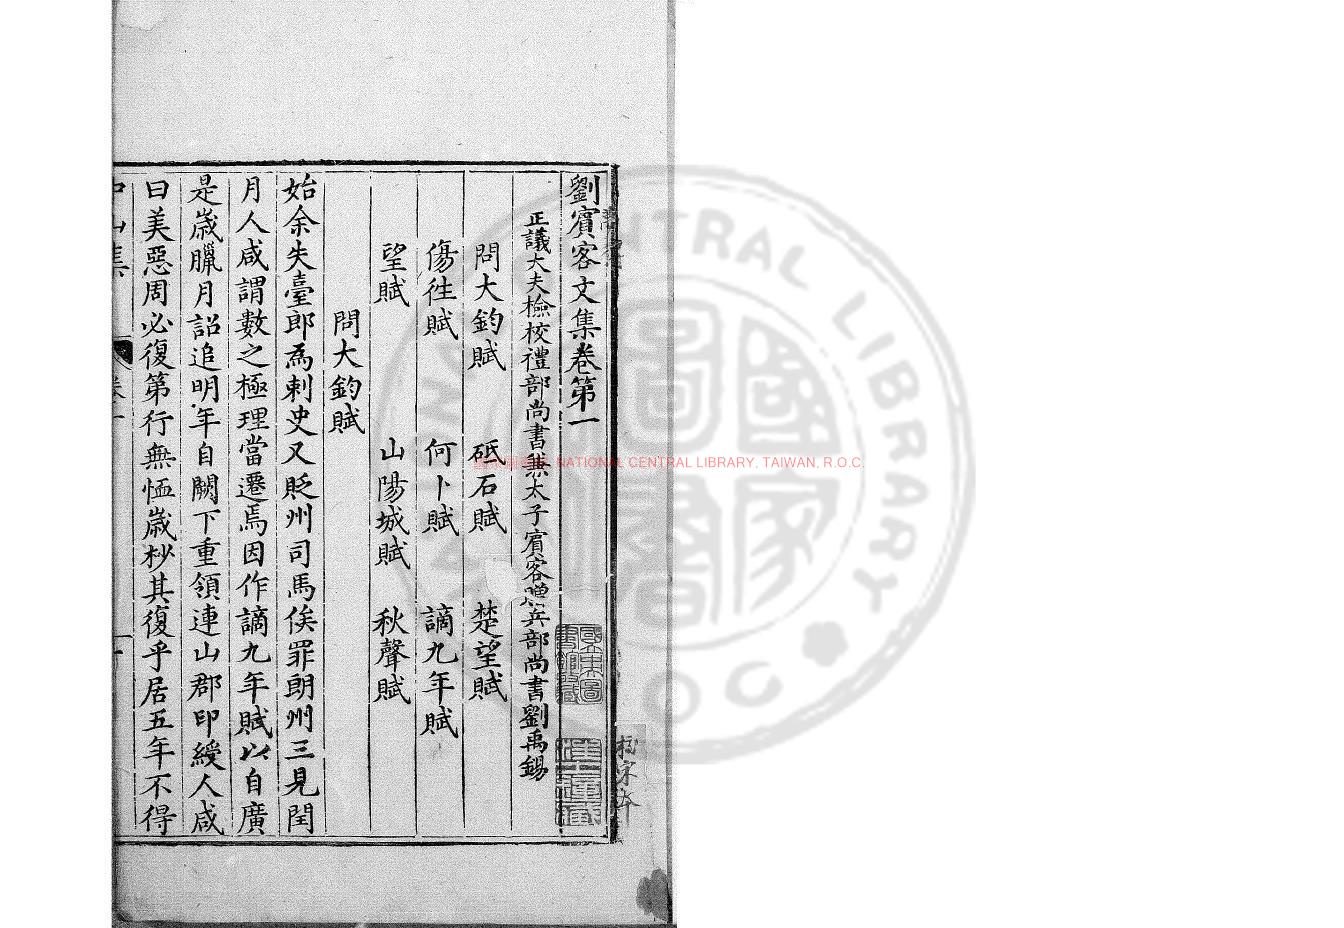 劉賓客文集卷第一
正議大夫檢校禮部尚書兼太子賓客贈兵部尚書劉禹錫
問大鈞賦 砥石賦 楚望賦
傷往賦 何卜賦 謫九年賦
望賦 山陽城賦 秋聲賦
問大鈞賦
始余失臺郎爲刺史又貶州司馬俟罪朗州三見閏
月人咸謂數之極理當遷焉因作謫九年賦以自廣
是歲臘月詔追明年自闕下重領連山郡印綬人咸
曰美惡周必復第行無恤歲杪其復乎居五年不得
中山集 卷一
國立中央圖書館收藏
校宋本
NATIONAL CENTRAL LIBRARY, TAIWAN, R.O.C.